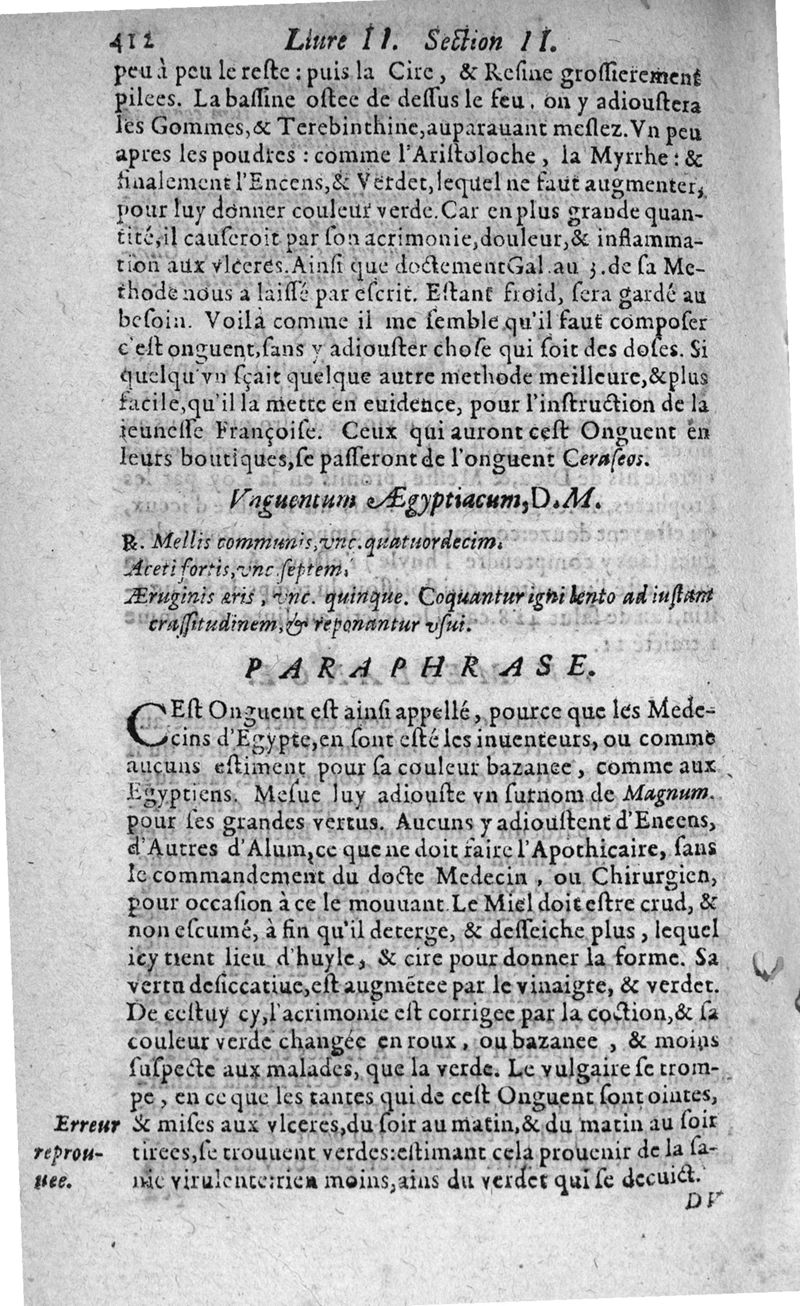 412 Liure II. Section II.
peu à peu le reste : puis la Cire, & Resine grossierement
pilees. La bassine ostee de dessus le feu, on y adioustera
les Gommes, & Terebinthine, auparauant meslez. Vn peu
apres les poudres : comme l'Aristoloche, la Myrrhe : &
finalement l'Encens, & Verdet, lequel ne faut augmenter,
pour luy donner couleur verde. Car en plus grande quan-
tité, il causeroit par son acrimonie, douleur, & inflamma-
tion aux vlceres. Ainsi que doctement Gal. au 3. de sa Me-
thode nous a laissé par escrit. Estant froid, sera gardé au
besoin. Voilà comme il me semble qu'il faut composer
c'est onguent, sans y adiouster chose qui soit des doses. Si
quelqu'vn sçait quelque autre methode meilleure, & plus
facile, qu'il la mette en euidence, pour l'instruction de la
ieunesse Françoise. Ceux qui auront cest Onguent en
leurs boutiques, se passeront de l'onguent Ceraseos.
Vnguentum Ægyptiacum, D. M.
℞. Mellis communis, vnc. quatuordecim.
Aceti fortis, vnc. septem.
Æruginis æris, vnc. quinque. Coquantur igni lento ad iustam
crassitudinem, & reponantur vsui.
PARAPHRASE.
CEst Onguent est ainsi appellé, pource que les Mede-
cins d'Egypte, en sont esté les inuenteurs, ou comme
aucuns estiment pour sa couleur bazanee, comme aux
Egyptiens. Mesue luy adiouste vn surnom de Magnum.
pour ses grandes vertus. Aucuns y adioustent d'Encens,
d'Autres d'Alum, ce que ne doit faire l'Apothicaire, sans
le commandement du docte Medecin, ou Chirurgien,
pour occasion à ce le mouuant. Le Miel doit estre crud, &
non escumé, à fin qu'il deterge, & desseiche plus, lequel
icy tient lieu d'huyle, & cire pour donner la forme. Sa
vertu desiccatiue, est augmẽtee par le vinaigre, & verdet.
De cestuy cy, l'acrimonie est corrigee par la coction, & sa
couleur verde changée en roux, ou bazanee, & moins
suspecte aux malades, que la verde. Le vulgaire se trom-
pe, en ce que les tantes qui de cest Onguent sont ointes,
Erreur & mises aux vlceres, du soir au matin, & du matin au soir
reprou- tirees, se trouuent verdes: estimant cela prouenir de la sa-
uee. nie virulente: rien moins, ains du verdet qui se decuict.
DV